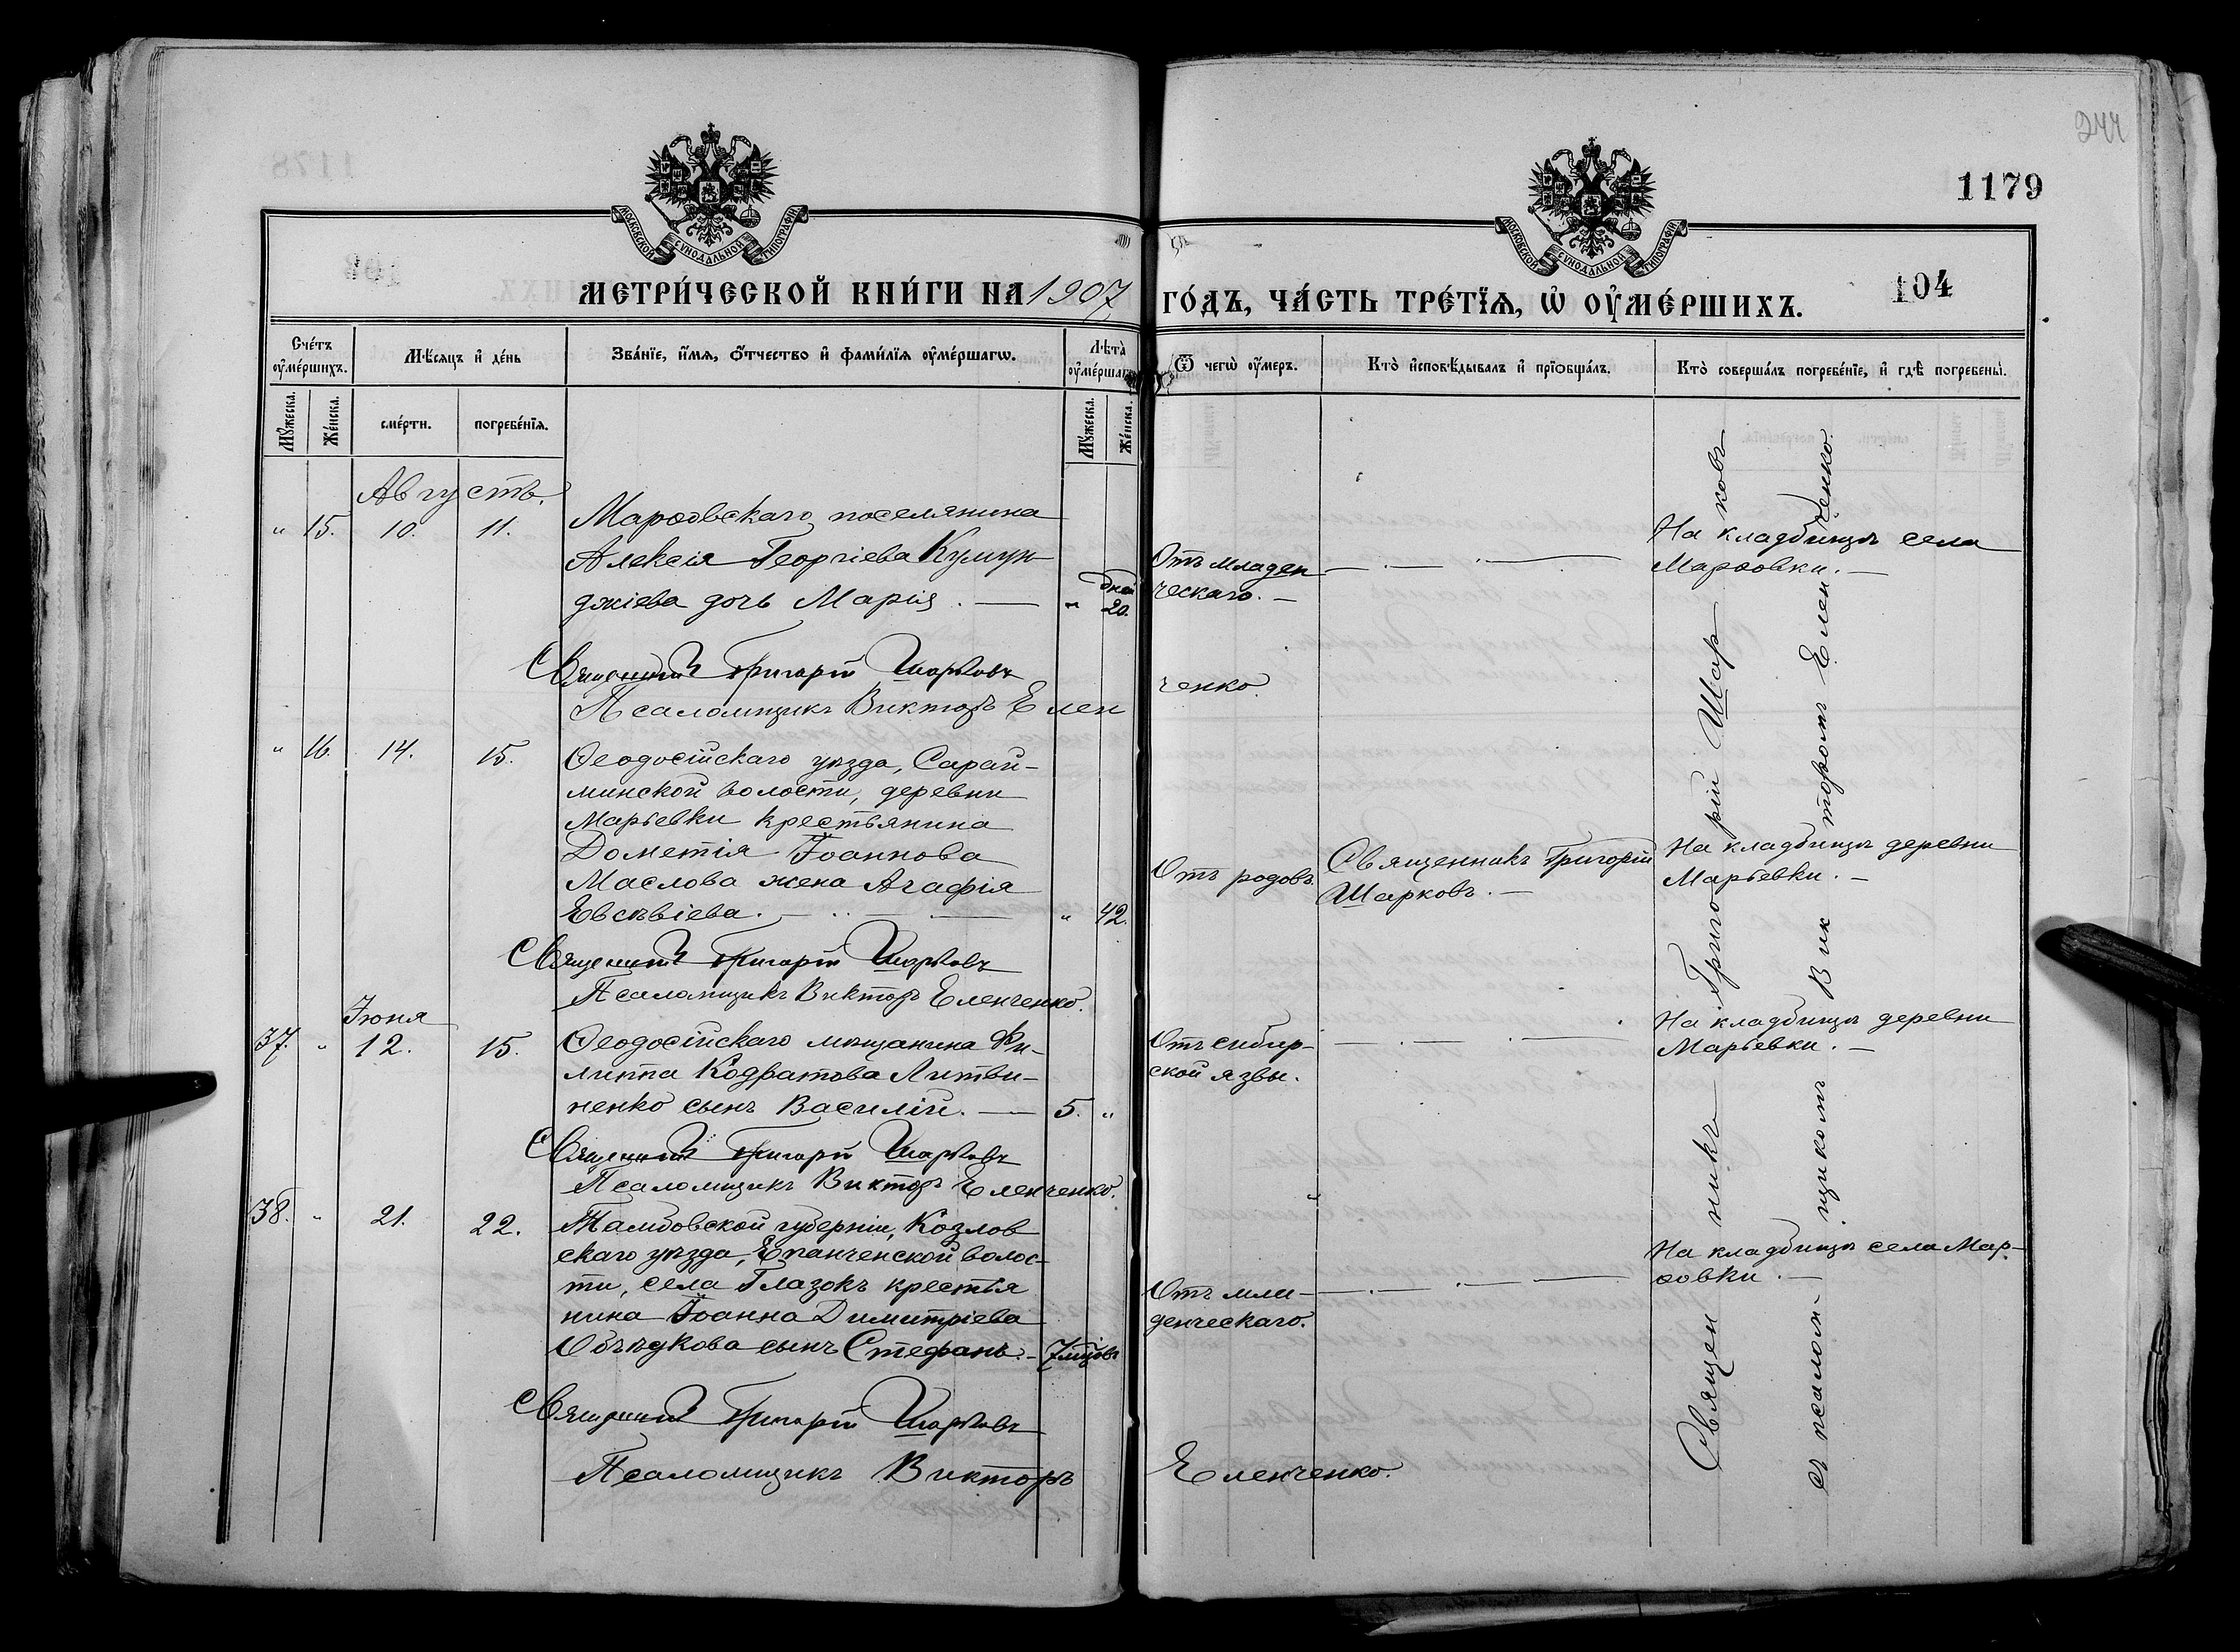 244
1179
МОСКОВСКОЙ СѴНОДАЛЬНОЙ ТИПОГРАФІИ
МОСКОВСКОЙ СѴНОДАЛЬНОЙ ТИПОГРАФІИ
104
МЕТРИ́ЧЕСКОЙ КНИ́ГИ НА 1907 ГО́ДЪ, ЧА́СТЬ ТРЕ́ТЇѦ, Ѡ҆ ОУ҆МЕ́РШИХЪ.
Сче́тъ оу҆ме́ршихъ.
Мѣ́сяцъ и҆ де́нь
Зва́нїе, и҆́мя, ѻ҆́тчество и҆ фами́лїя оу҆ме́ршагѡ.
Лѣ́та оу҆ме́ршагѡ
Ѿ чегѡ̀ оу҆́меръ.
Кто̀ и҆сповѣ́дывалъ и҆ прїѻбща́лъ.
Кто̀ соверша́лъ погребе́нїе, и҆ гдѣ̀ погребены̀.
Мꙋ́жеска.
Же́нска.
сме́рти.
погребе́нїя.
Мꙋ́жеска.
Же́нска.
Августъ.
" 15. 10. 11. Марѳовскаго поселянина
Алексія Георгіева Кумун
джіева дочь Марія. — " дней 20.
Отъ младен
ческаго. —
На кладбищѣ села
Марѳовки. —
Священникъ Григорій Шарковъ
Псаломщикъ Викторъ Елен
ченко.
" 16. 14. 15. Ѳеодосійскаго уѣзда, Сарай-
минской волости, деревни
Марьевки крестьянина
Дометія Іоаннова
Маслова жена Агафія
Евсѣвіева. — " 42.
Отъ родовъ.
Священникъ Григорій
Шарковъ. —
На кладбищѣ деревни
Марьевки. —
Священникъ Григорій Шарковъ
Псаломщикъ Викторъ Еленченко.
Іюня
37. " 12. 15. Ѳеодосійскаго мѣщанина Фи-
липпа Кодратова Литви-
ненко сынъ Василій. — 5. "
Отъ сибир-
ской язвы.
На кладбищѣ деревни
Марьевки. —
Священникъ Григорій Шарковъ
Псаломщикъ Викторъ Еленченко.
38. " 21. 22. Тамбовской губерніи, Козлов
скаго уѣзда, Епанченской волос-
ти, села Глазокъ крестья
нина Іоанна Димитріева
сынъ Стефанъ. — 7 мѣсцовъ
Отъ мла-
денческаго.
На кладбищѣ села Мар-
ѳовки. —
Священникъ Григорій Шарковъ
Псаломщикъ Викторъ Еленченко.
Священникъ Григорій Шарковъ
съ псаломщикомъ Викторомъ Еленченко.